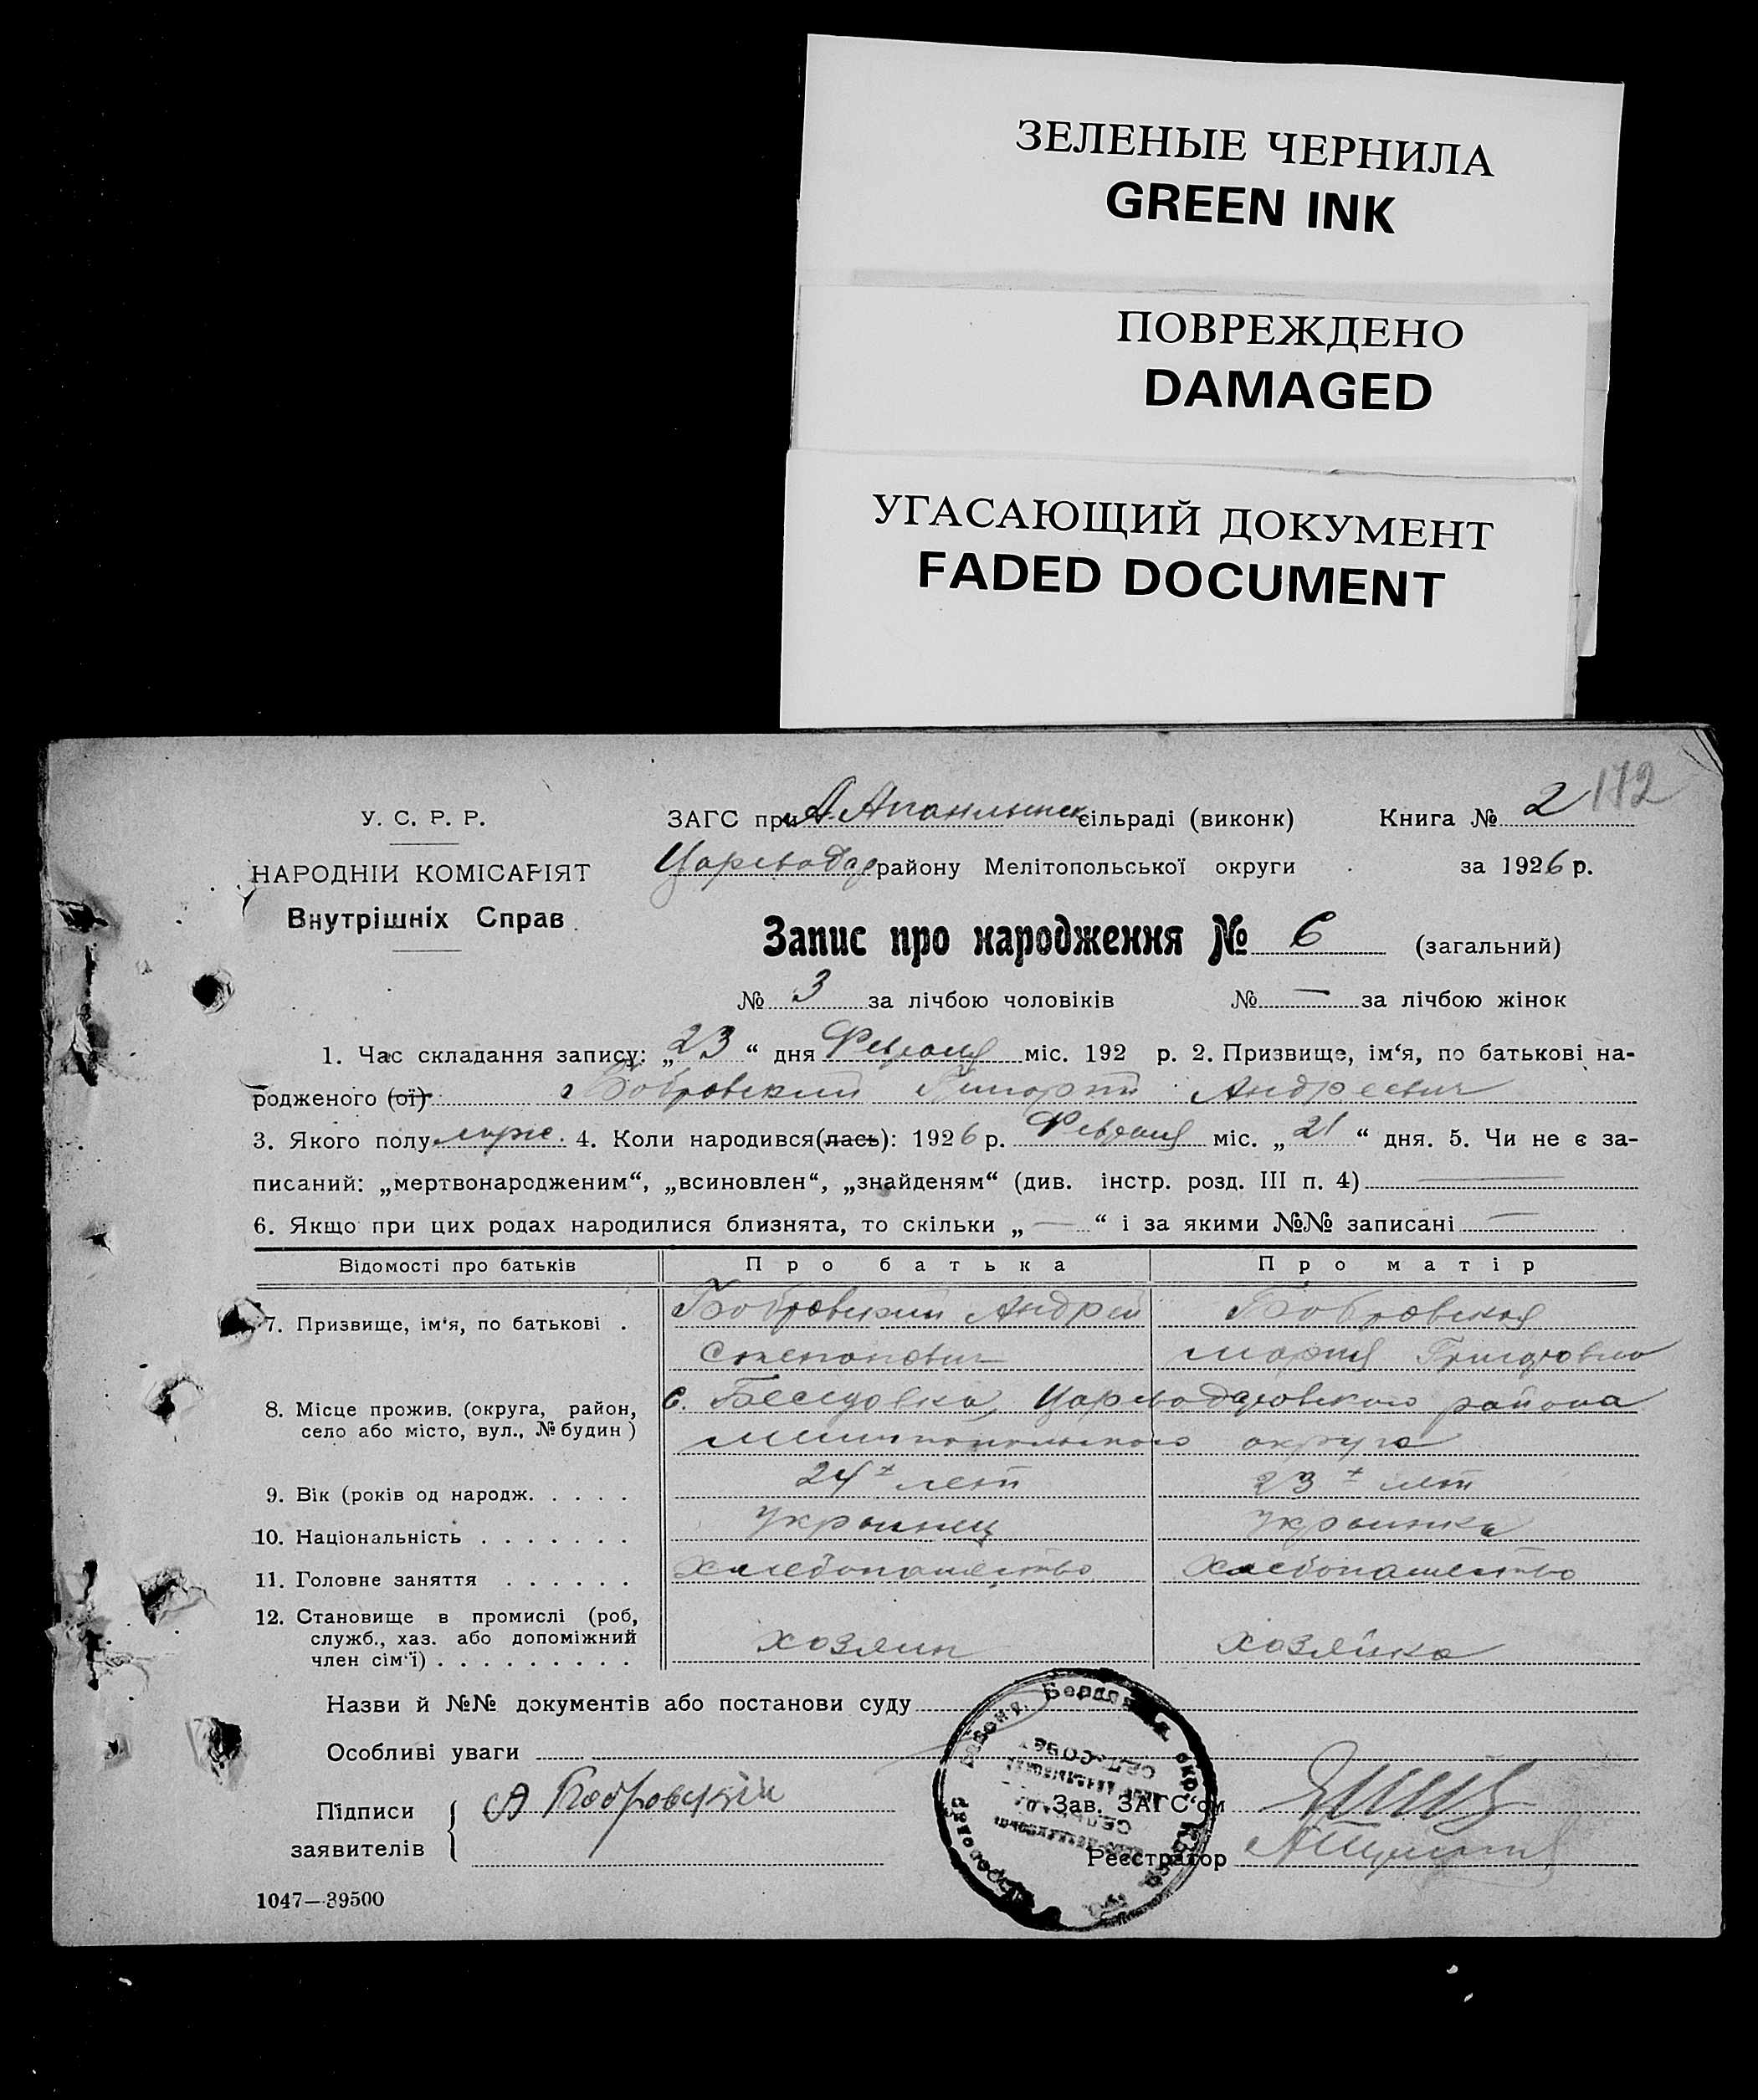 ЗЕЛЕНЫЕ ЧЕРНИЛА
GREEN INK
ПОВРЕЖДЕНО
DAMAGED
УГАСАЮЩИЙ ДОКУМЕНТ
FADED DOCUMENT
172
У. С. Р. Р. ЗАГС при сільраді (виконк) Книга № 2
НАРОДНІЙ КОМІСАРІЯТ Цареводар району Мелітопольської округи за 1926 р.
Внутрішніх Справ
Запис про народження № 6 (загальний)
№ 3 за лічбою чоловіків № — за лічбою жінок
1. Час складання запису: „23“ дня Февраля міс. 192 р. 2. Призвище, ім‘я, по батькові на-
родженого (ої) Бобровский Андреевич
3. Якого полу муж. 4. Коли народився(лась): 1926 р. Февраля міс. „21“ дня. 5. Чи не є за-
писаний: „мертвонародженим“, „всиновлен“, „знайденям“ (див. інстр. розд. III п. 4) —
6. Якщо при цих родах народилися близнята, то скільки „—“ і за якими №№ записані —
Відомості про батьків Про батька Про матір
7. Призвище, ім‘я, по батькові . Бобровский Андрей Бобровская
Степанович Мария
8. Місце прожив. (округа, район, с. Беседовка, Цареводаровского района
село або місто, вул., № будин ) Мелитопольского округа
9. Вік (років од народж. . . . . 24 лет 23 лет
10. Національність . . . . . . . Украинец Украинка
11. Головне заняття . . . . . . Хлебопашество Хлебопашество
12. Становище в промислі (роб,
служб., хаз. або допоміжний хозяин хозяйка
член сім‘ї) . . . . . . . . .
Назви й №№ документів або постанови суду
Особливі уваги
Підписи А Бобровский Зав. ЗАГС‘ом
заявителів Реєстратор
1047—39500